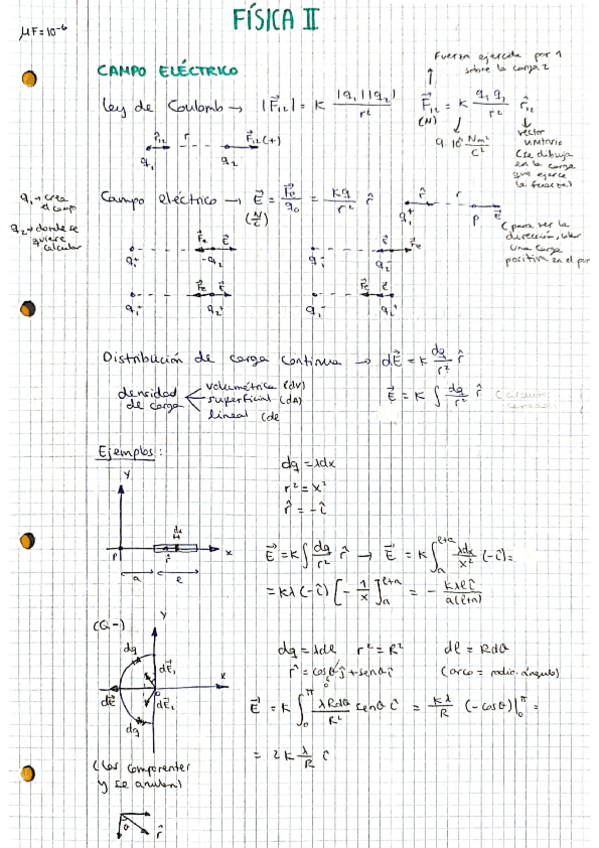 FÍSICA II
μF = 10⁻⁶
CAMPO ELÉCTRICO
Fuerza ejercida por 1
sobre la carga 2
Ley de Coulomb → |F⃗₁₂| = K |q₁||q₂| / r²
F⃗₁₂ = K q₁ q₂ / r² r̂₁₂
(N)
9·10⁹ Nm²/C²
vector
unitario
(se dibuja
en la carga
que ejerce
la fuerza)
r̂₁₂ r F⃗₁₂(+)
q₁ q₂
q₁ → crea
el camp
q₂ → donde se
quiere
calcular
Campo eléctrico → E⃗ = F⃗₀/q₀ = Kq/r² r̂
(N/C)
r̂ r
q₁⁺ P E⃗
(para ver la
dirección,
una carga
positiva en el
F⃗e E⃗
q₁⁺ -q₂
E⃗ F⃗e
q₁⁻ q₂⁻
F⃗e E⃗
q₁⁻ q₂⁺
F⃗e E⃗
q₁⁻ q₂⁺
Distribución de carga continua → dE⃗ = K dq/r² r̂
densidad
de carga
volumétrica (dv)
superficial (dA)
lineal (dl
E⃗ = K ∫ dq/r² r̂
Ejemplos:
dq = λdx
r² = x²
r̂ = -î
y
dx
P r̂ x
a l
E⃗ = K ∫ dq/r² r̂ → E⃗ = K ∫ₐˡ⁺ᵃ λdx/x² (-î) =
= Kλ(-î) [-1/x]ₐˡ⁺ᵃ = - Kλl î / a(l+a)
(Q-)
y
dq
dE⃗₁
x
dE⃗
dE⃗₂
dq
dq = λdl r² = R² dl = Rdθ
r̂ = cosθ ĵ + senθ î (arco = radio·ángulo)
E⃗ = K ∫₀^π λRdθ/R² senθ î = Kλ/R (-cosθ)|₀^π =
= 2K λ/R î
(las componentes
y se anulan)
θ r̂